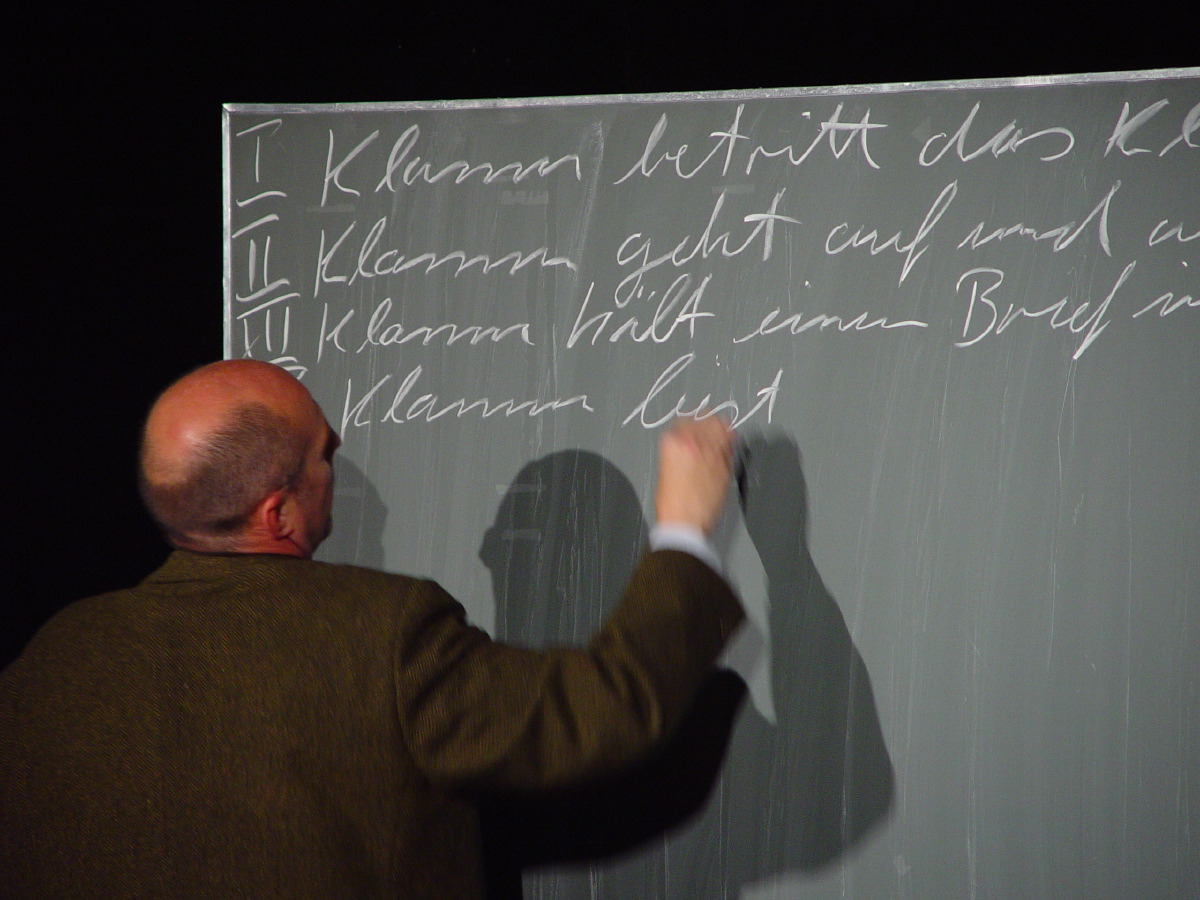 I Klamm betritt das Kl
II Klamm geht auf und a
III Klamm hält einen Brief in
Klamm liest